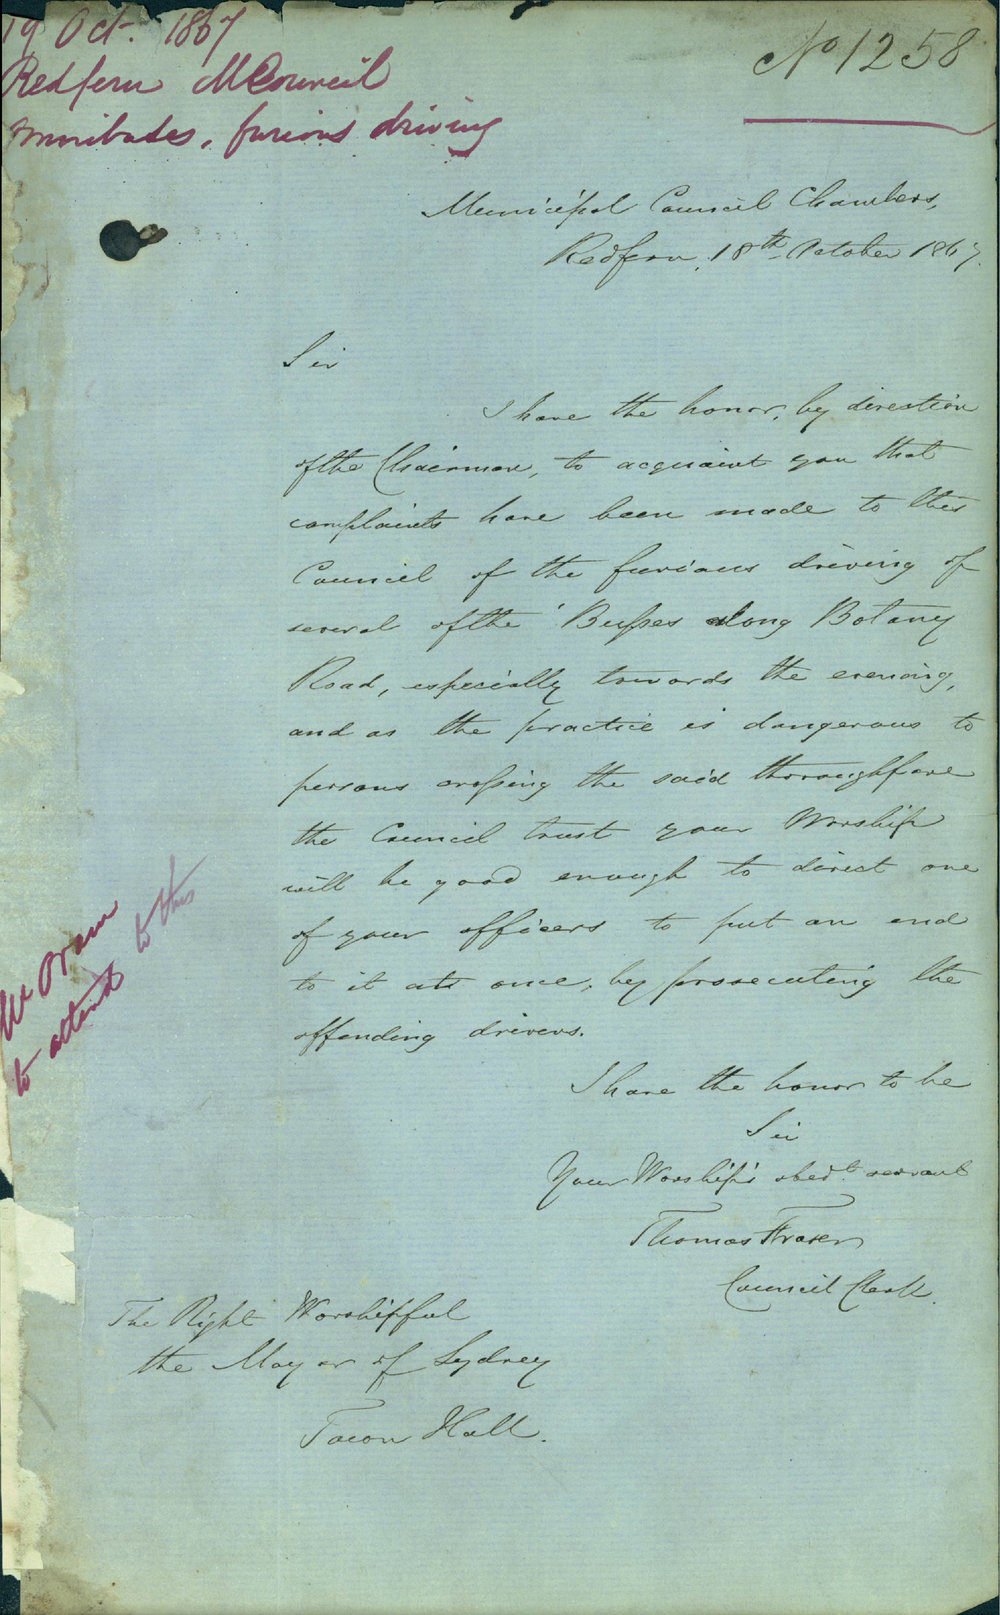 19 Oct. 1867
Redfern M Council
omnibuses, furious driving
No 1258
Municipal Council Chambers,
Redfern, 18th October 1867.
Sir
I have the honor, by direction
of the Chairman, to acquaint you that
complaints have been made to this
Council of the furious driving of
several of the 'Busses along Botany
Road, especially towards the evening,
and as the practice is dangerous to
persons crossing the said thoroughfare
the Council trust your Worship
will be good enough to direct one
of your officers to put an end
to it at once, by prosecuting the
offending drivers.
I have the honor to be
Sir
Your Worship's obedt. servant
Thomas Fraser
Council Clerk.
The Right Worshipful
the Mayor of Sydney
Town Hall.
Mr Oram
to attend to this